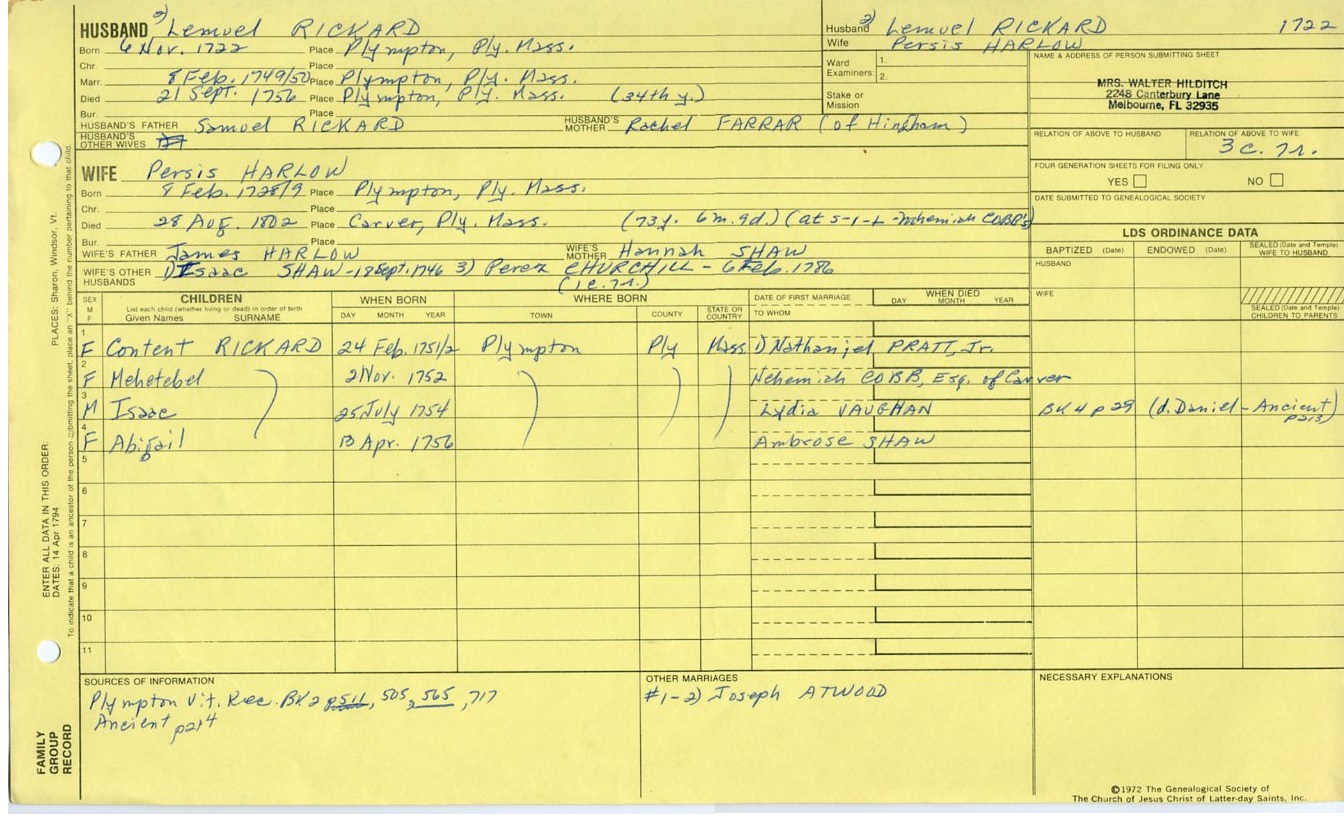 HUSBAND 2) Lemuel RICKARD
Born 6 Nov. 1722 Place Plympton, Ply. Mass.
Chr. Place
Marr. 8 Feb. 1749/50 Place Plympton, Ply. Mass.
Died 21 Sept. 1756 Place Plympton, Ply. Mass. (34th y.)
Bur. Place
HUSBAND'S FATHER Samuel RICKARD HUSBAND'S MOTHER Rachel FARRAR (of Hingham)
HUSBAND'S OTHER WIVES
WIFE Persis HARLOW
Born 8 Feb. 1728/9 Place Plympton, Ply. Mass.
Chr. Place
Died 28 Aug. 1802 Place Carver, Ply. Mass. (73y. 6m. 9d.) (at s-i-L Nehemiah COBB's)
Bur. Place
WIFE'S FATHER James HARLOW WIFE'S MOTHER Hannah SHAW
WIFE'S OTHER HUSBANDS 1) Isaac SHAW - 18 Sept. 1746 3) Perez CHURCHILL - 6 Feb. 1786
(1c. 7r.)
Husband 2) Lemuel RICKARD 1722
Wife Persis HARLOW
Ward
Examiners: 1.
2.
Stake or
Mission
NAME & ADDRESS OF PERSON SUBMITTING SHEET
MRS. WALTER HILDITCH
2248 Canterbury Lane
Melbourne, FL 32935
RELATION OF ABOVE TO HUSBAND RELATION OF ABOVE TO WIFE
3 c. 7r.
FOUR GENERATION SHEETS FOR FILING ONLY
YES NO
DATE SUBMITTED TO GENEALOGICAL SOCIETY
LDS ORDINANCE DATA
BAPTIZED (Date) ENDOWED (Date) SEALED (Date and Temple) WIFE TO HUSBAND
HUSBAND
WIFE
SEALED (Date and Temple) CHILDREN TO PARENTS
SEX M F CHILDREN WHEN BORN WHERE BORN DATE OF FIRST MARRIAGE WHEN DIED
List each child (whether living or dead) in order of birth
Given Names SURNAME DAY MONTH YEAR TOWN COUNTY STATE OR COUNTRY TO WHOM DAY MONTH YEAR
1 F Content RICKARD 24 Feb. 1751/2 Plympton Ply Mass 1) Nathaniel PRATT, Jr.
2 F Mehetebel 2 Nov. 1752 Nehemiah COBB, Esq. of Carver
3 M Isaac 25 July 1754 Lydia VAUGHAN BK 4 p 29 (d. Daniel - Ancient p213)
4 F Abigail 13 Apr. 1756 Ambrose SHAW
5
6
7
8
9
10
11
SOURCES OF INFORMATION
Plympton Vit. Rec. BK 2 p511, 505, 565, 717
Ancient p214
OTHER MARRIAGES
#1-2) Joseph ATWOOD
NECESSARY EXPLANATIONS
©1972 The Genealogical Society of
The Church of Jesus Christ of Latter-day Saints, Inc.
FAMILY
GROUP
RECORD
ENTER ALL DATA IN THIS ORDER:
DATES: 14 Apr 1794
PLACES: Sharon, Windsor, Vt.
To indicate that a child is an ancestor of the person submitting the sheet, place an "X" behind the number pertaining to that child.